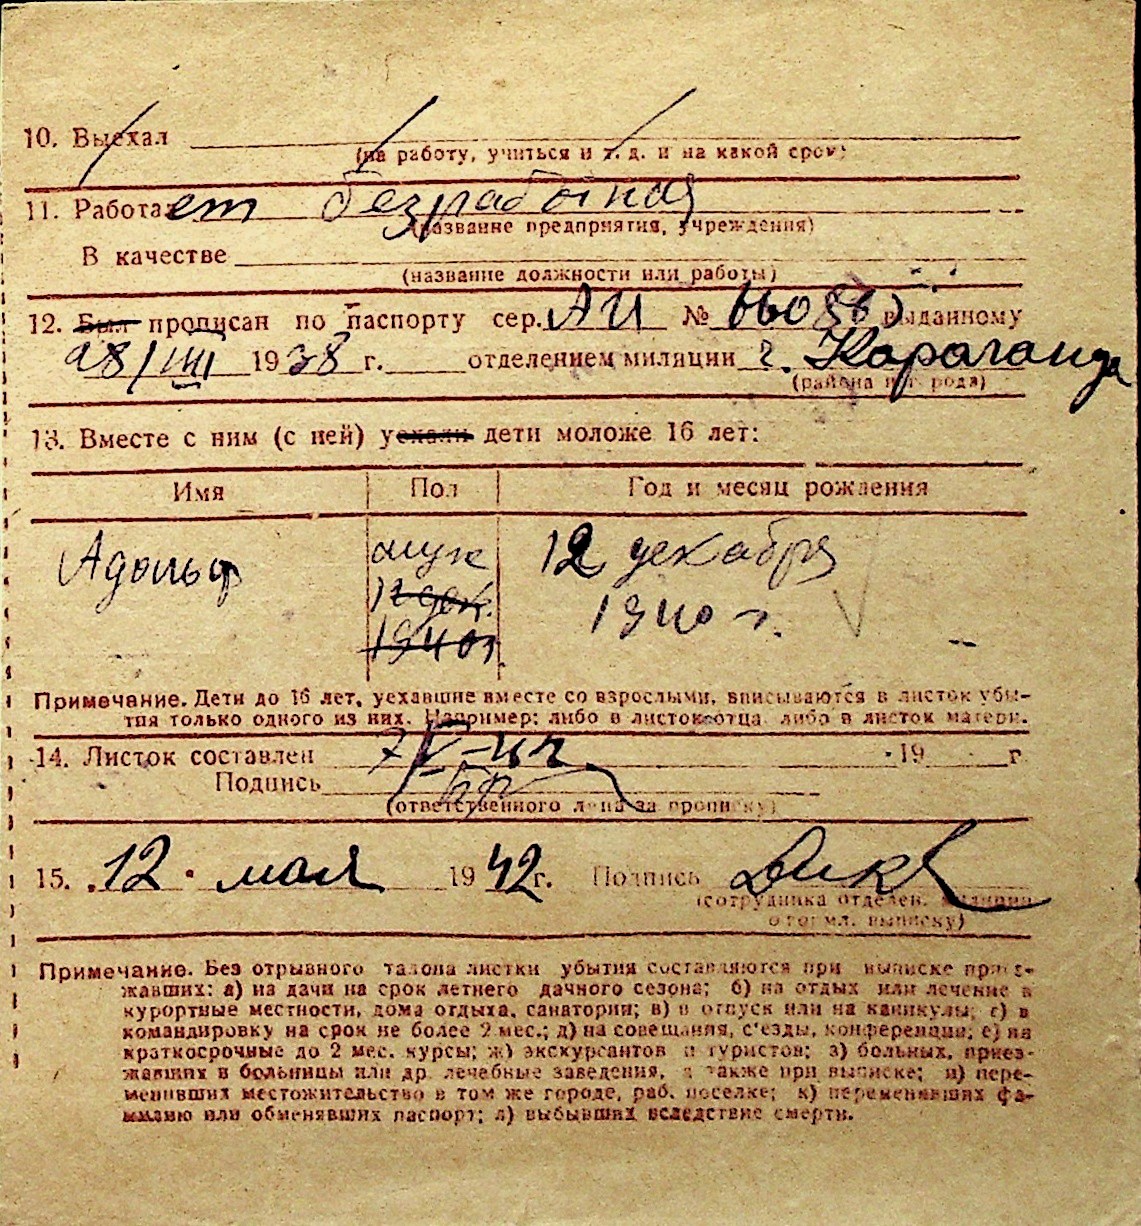 10. Выехал
(на работу, учиться и т. д. и на какой срок)
11. Работает безработная
(название предприятия, учреждения)
В качестве
(название должности или работы)
12. Был прописан по паспорту сер. АИ № выданному
28/VIII 1938 г. отделением милиции г. Караганда
(района и города)
13. Вместе с ним (с ней) уехали дети моложе 16 лет:
Имя Пол Год и месяц рождения
Адольф муж 12 декабря
12 дек. 1940 г.
1940г.
Примечание. Дети до 16 лет, уехавшие вместе со взрослыми, вписываются в листок убы-
тия только одного из них. Например: либо в листок отца, либо в листок матери.
14. Листок составлен 7/V-42 19 г
Подпись
(ответственного лица за прописку)
15. 12 мая 1942г. Подпись
(сотрудника отделен. милиции
оформл. выписку)
Примечание. Без отрывного талона листки убытия составляются при выписке приез-
жавших: а) на дачи на срок летнего дачного сезона; б) на отдых или лечение в
курортные местности, дома отдыха, санатории; в) в отпуск или на каникулы; г) в
командировку на срок не более 2 мес.; д) на совещания, с'езды, конференции; е) на
краткосрочные до 2 мес. курсы; ж) экскурсантов и туристов; з) больных, приез-
жавших в больницы или др. лечебные заведения, а также при выписке; и) пере-
менивших местожительство в том же городе, раб. поселке; к) переменивших фа-
милию или обменявших паспорт; л) выбывших вследствие смерти.